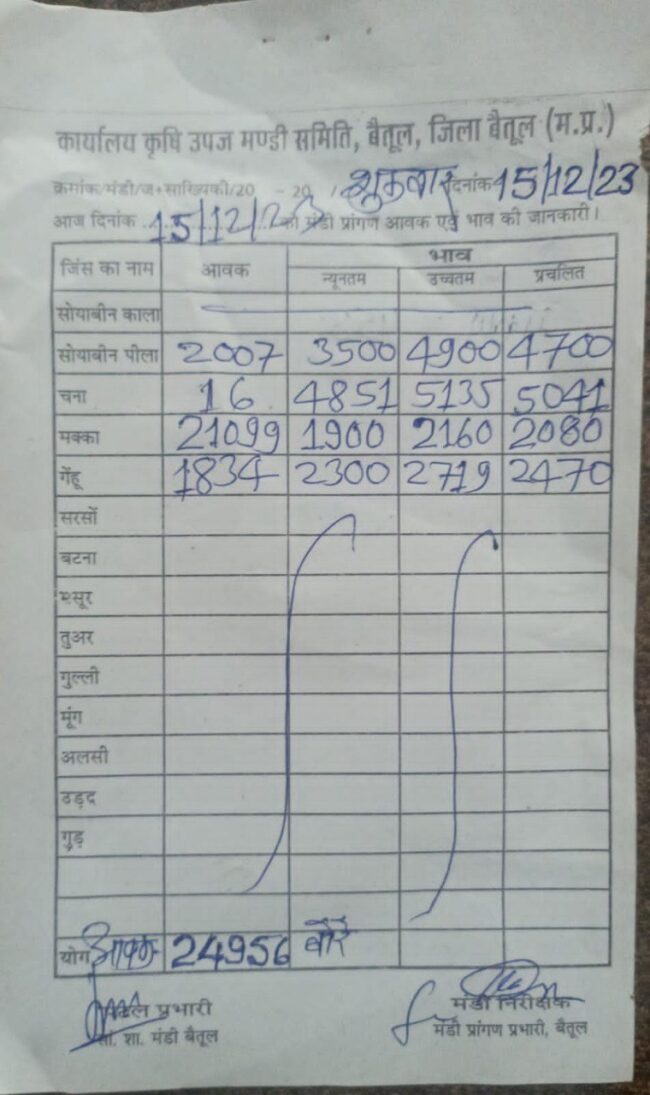 कार्यालय कृषि उपज मण्डी समिति, बैतूल, जिला बैतूल (म.प्र.)
क्रमांक/मंडी/ज+सांख्यिकी/20 - 20 / शुक्रवार दिनांक 15/12/23
आज दिनांक 15/12/23 को मंडी प्रांगण आवक एवं भाव की जानकारी।
जिंस का नाम आवक भाव
न्यूनतम उच्चतम प्रचलित
सोयाबीन काला
सोयाबीन पीला 2007 3500 4900 4700
चना 16 4851 5135 5041
मक्का 21099 1900 2160 2080
गेंहू 1834 2300 2719 2470
सरसों
बटना
मसूर
तुअर
गुल्ली
मूंग
अलसी
उड़द
गुड़
योग आवक 24956 बोरे
प्रभारी मंडी निरीक्षक
सां. शा. मंडी बैतूल मंडी प्रांगण प्रभारी, बैतूल